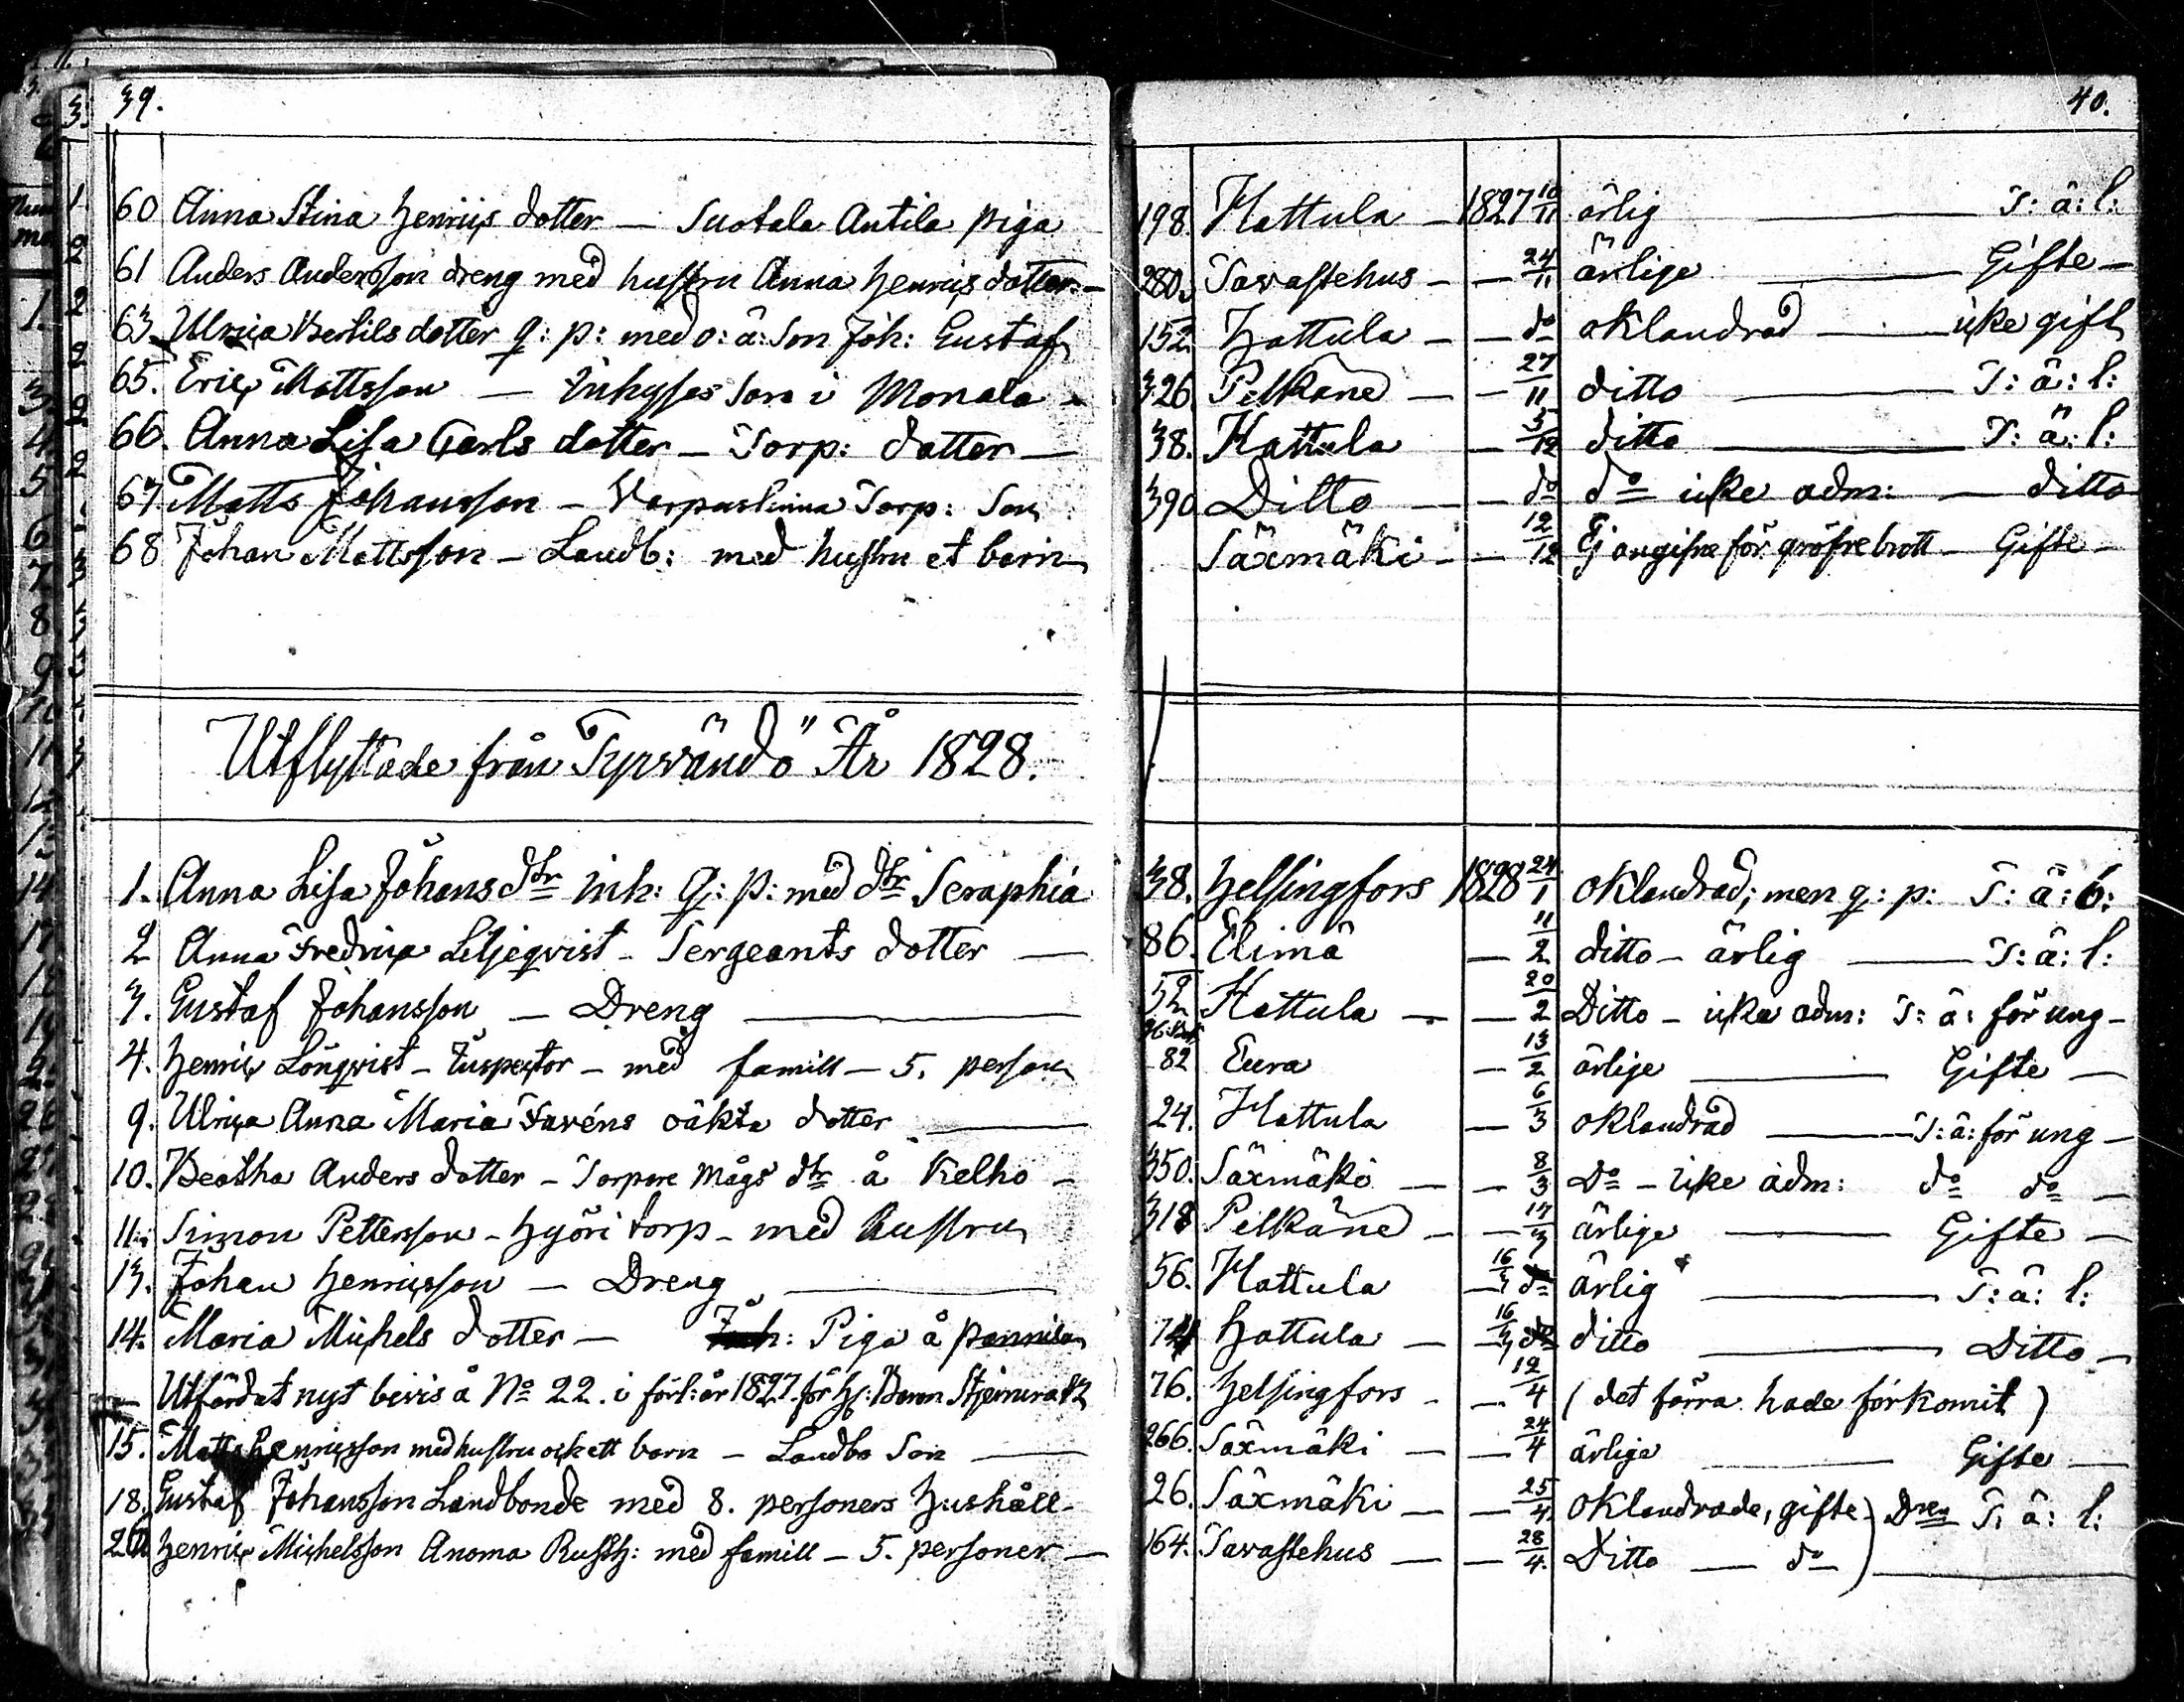 39.
60 Anna Stina Henrics dotter — Suotala Antila piga
61 Anders Andersson dreng med hustru Anna Henrics dotter —
63. Ulrica Bertils dotter q: p: med o: ä: Son Joh: Gustaf
65. Eric Mattsson — Inhyses Son i Monala
66. Anna Lisa Carls dotter — Torp: dotter —
67. Matts Johansson — Varpaslinna Torp: Son
68 Johan Mattsson — Landb: med hustru et barn
Utflyttade från Tyrvändö År 1828.
1. Anna Lisa Johans dtr inh: q: p: med dtr Seraphia
2 Anna Fredrica Liljeqvist — Sergeants dotter —
3. Gustaf Johansson — Dreng —
4. Henric Lönqvist — Inspector — med famill — 5. person
9. Ulrica Anna Maria Favéns oäkta dotter —
10. Beatha Anders dotter — Torpare mågs dtr å Kelho —
11. Simon Pettersson — Hyöri torp — med Hustru
13. Johan Henricsson — Dreng —
14. Maria Michels dotter — Piga å Pannila
— Utfärdat nyt bevis å No 22. i förl: år 1827. för Hr: Baron
15. Matts Henricsson med hustru och ett barn — Landbo Son —
18. Gustaf Johansson Landbonde med 8. personers Hushåll —
26 Henric Michelsson Anoma Rusth: med famill — 5. personer —
40.
198. Hattula — 1827 10/11 ärlig — T: ä: l:
280. Tavastehus — — 24/11 ärlige — Gifte —
152. Hattula — — do oklandrad — icke gift
326. Pelkäne — — 27/11 ditto — T: ä: l:
38. Hattula — 5/12 ditto — T: ä: l:
390 Ditto — — do do icke adm: — ditto
Säxmäki — — 12/12 Ej angifne för gröfre brott — Gifte —
38. Helsingfors 1828 24/1 oklandrad; men q: p: T: ä: l:
86. Elimä — 11/2 ditto — ärlig — T: ä: l:
52. Hattula — — 20/2 Ditto — icke adm: T: ä: för ung —
82 Eura — 13/2 ärlige — Gifte —
24. Hattula — 6/3 oklandrad — T: ä: för ung —
350. Säxmäki — — 8/3 Do — icke adm: do do —
318 Pelkäne — — 14/3 ärlige — Gifte —
56. Hattula — 16/3 ärlig — T: ä: l:
74 Hattula — — 16/3 ditto — Ditto —
76. Helsingfors — — 12/4 (det förra hade förkomit)
266. Säxmäki — — 24/4 ärlige — Gifte —
26. Säxmäki — — 25/4. oklandrade, gifte) T: ä: l:
164. Tavastehus — — 28/4. Ditto — do)